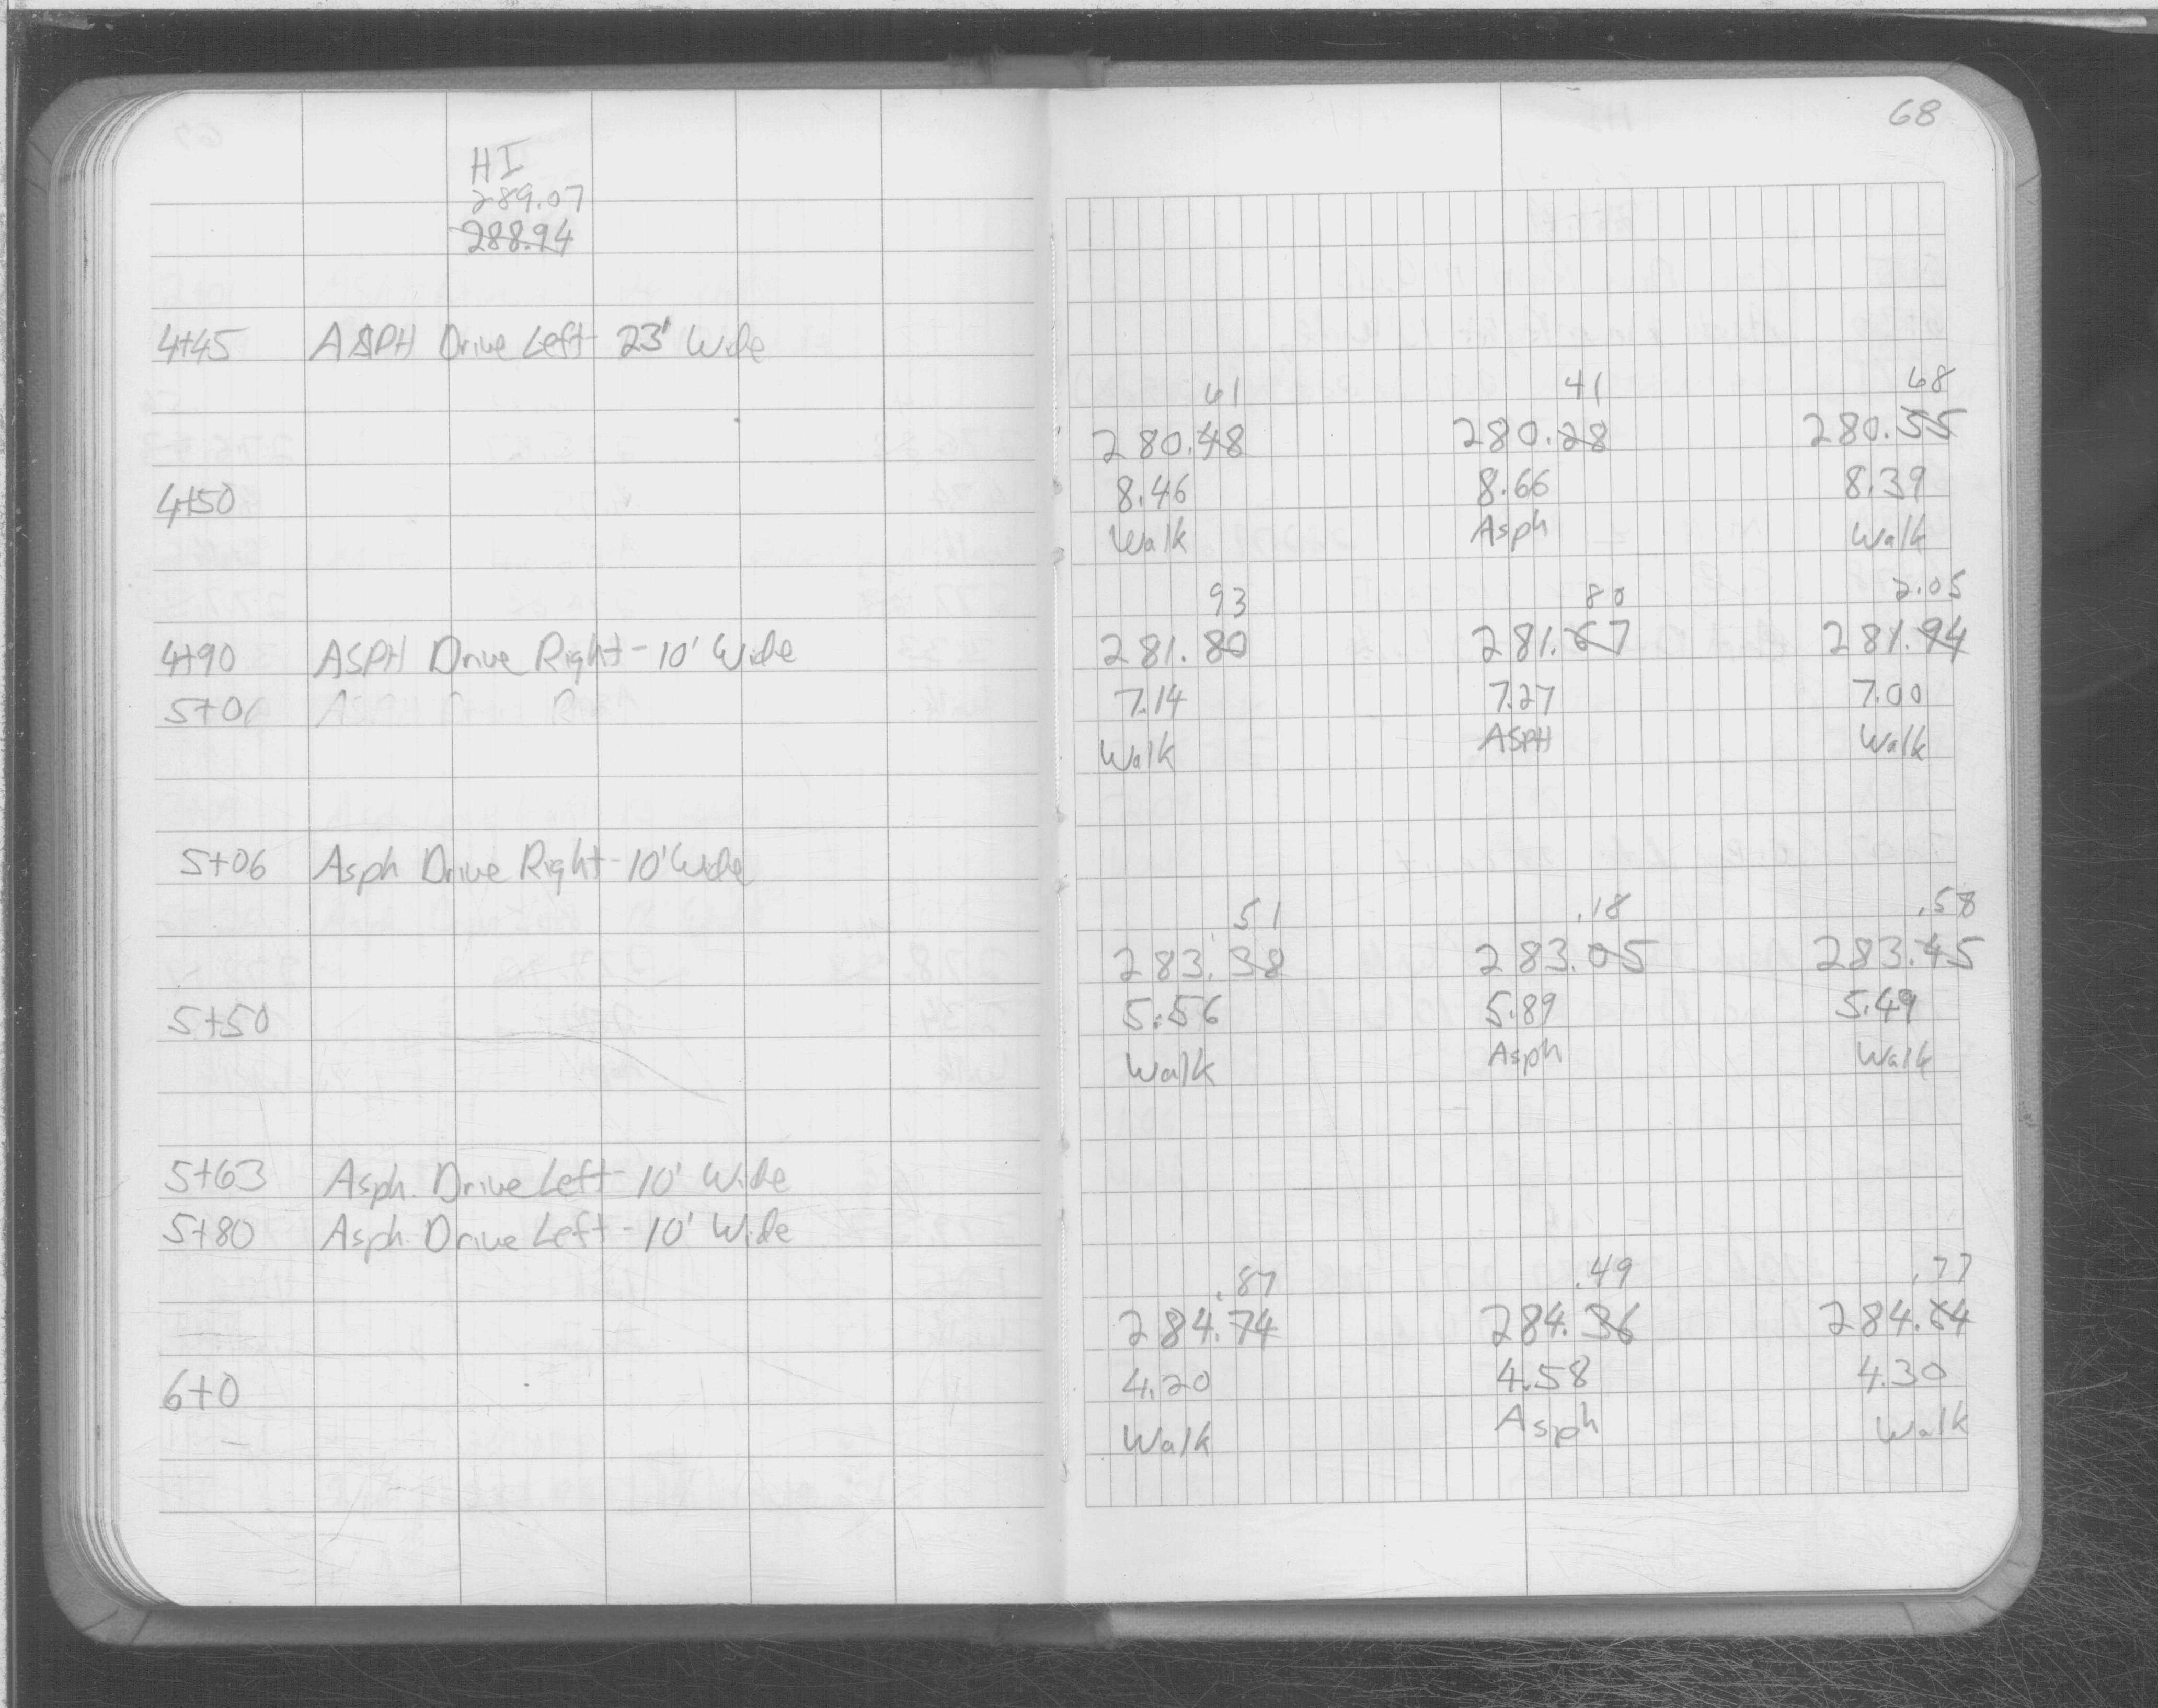 68
HI
289.07
288.94
4+45 ASPH Drive Left- 23' Wide
61 41 68
280.48 280.28 280.55
4+50 8.46 8.66 8.39
Walk Asph Walk
93 80 2.05
4+90 ASPH Drive Right - 10' Wide 281.80 281.67 281.94
5+06 7.14 7.27 7.00
Walk ASPH Walk
5+06 Asph Drive Right - 10' Wide
.51 .18 .58
283.38 283.05 283.45
5+50 5.56 5.89 5.49
Walk Asph Walk
5+63 Asph. Drive Left - 10' Wide
5+80 Asph. Drive Left - 10' Wide
.87 .49 .77
284.74 284.36 284.64
6+0 4.20 4.58 4.30
Walk Asph Walk